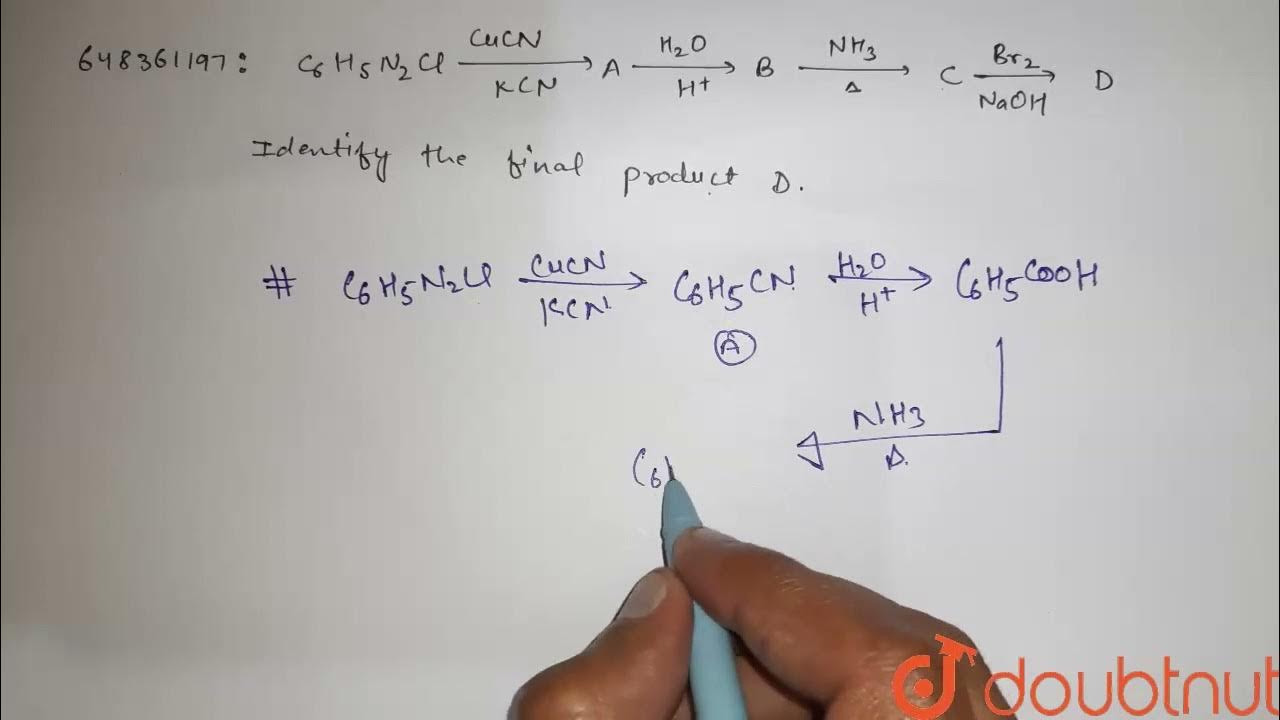 648361197: C6H5N2Cl CuCN KCN A H2O H+ B NH3 Δ C Br2 NaOH D
Identify the final product D.
# C6H5N2Cl CuCN KCN C6H5CN H2O H+ C6H5COOH
A
NH3
Δ.
C6
doubtnut